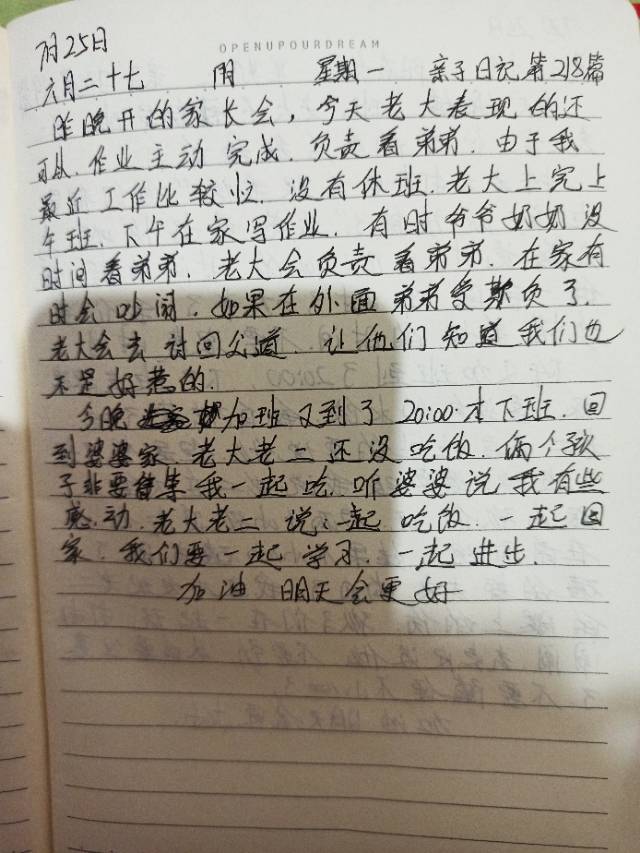 7月25日
OPENUPOURDREAM
六月二十七 阴 星期一 亲子日记第218篇
昨晚开的家长会，今天老大表现的还
可以.作业主动完成.负责看弟弟.由于我
最近工作比较忙.没有休班.老大上完上
午班.下午在家写作业.有时爷爷奶奶没
时间看弟弟.老大会负责看弟弟.在家有
时会吵闹.如果在外面弟弟受欺负了.
老大会去讨回父道.让他们知道我们也
不是好惹的.
今晚加班又到了20:00.才下班.回
到婆婆家老大老二还没吃饭.俩个孩
子非要等我一起吃.听婆婆说我有些
感动.老大老二说:一起吃饭.一起回
家.我们要一起学习.一起进步.
加油 明天会更好